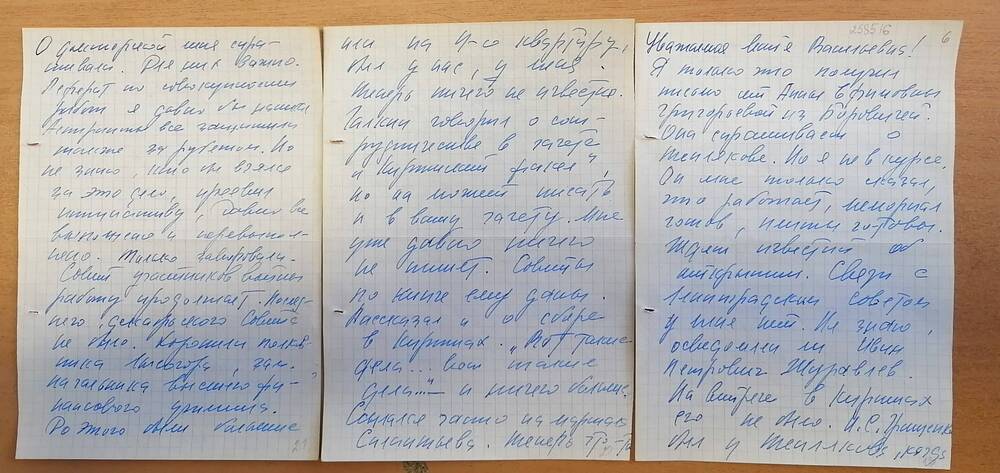 О докторской меня спра-
шивали. Для них важно.
Реферат по совокупности
работ я давно бы написал
также за рубежом. Но
не знаю, кто бы взялся
за это дело, проявил
инициативу, давно все
выполнено и перевыпол-
нено. Только
Совет участников войны
работу продолжает. Послед-
него, декабрьского Совета
не было. Хоронили полков-
ника Высокова, зам.
начальника высшего фи-
нансового училища.
До этого были большие
21
или на 4-ю квартиру,
был у нас, у меня.
Теперь ничего не известно.
Галкин говорил о сот-
рудничестве в газете
"Купринский факел",
но он может писать
и в вашу газету. Мне
уже давно ничего
не пишет. Советы
по книге ему даны.
Рассказал и о сборе
в Куришах. "Вот такие
дела... вот такие
дела..." и ничего больше.
Ссылался часто на журнал
Теперь
258516
6
Уважаемая Васильевна!
Я только что получил
письмо от Анны Ефимовны
Григорьевой из Боровичей.
Она спрашивает о
Теплякове. Но я не в курсе.
Он мне только сказал,
что работает, мемориал
готов, плиты готовы.
Ждем известий об
открытии. Связи с
Ленинградским советом
у меня нет. Не знаю,
осведомлен ли Иван
Петрович Журавлев.
На встрече в Куришах
его не было.
был у Теплякова, когда